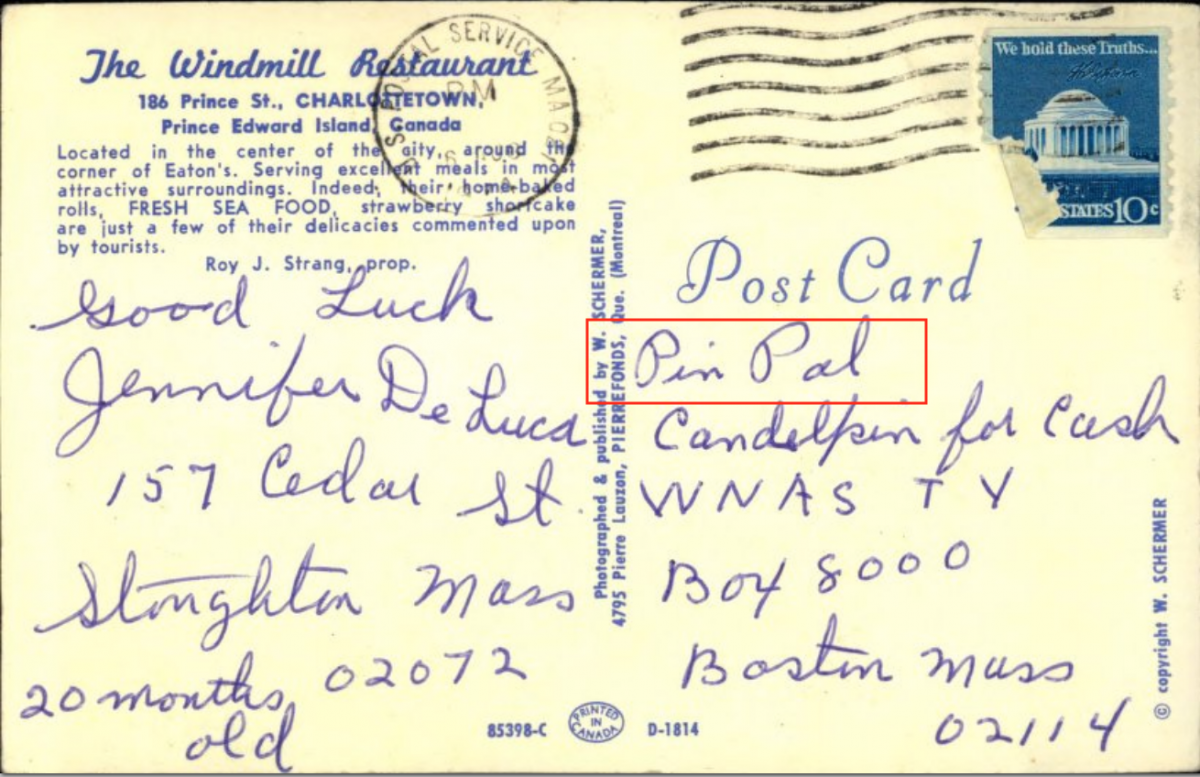 The Windmill Restaurant
186 Prince St., CHARLOTTETOWN,
Prince Edward Island, Canada
Located in the center of the city, around the
corner of Eaton's. Serving excellent meals in most
attractive surroundings. Indeed, their home-baked
rolls, FRESH SEA FOOD, strawberry shortcake
are just a few of their delicacies commented upon
by tourists.
Roy J. Strang, prop.
Good Luck
Jennifer De Luca
157 Cedar St.
Stoughton Mass
02072
20 months
old
85398-C
PRINTED
IN
CANADA
D-1814
Photographed & published by W. SCHERMER,
4795 Pierre Lauzon, PIERREFONDS, Que. (Montreal)
POSTAL SERVICE MA
PM
We hold these Truths...
STATES 10c
Post Card
Pin Pal
Candelpin for Cash
WNAS TV
Box 8000
Boston Mass
02114
© copyright W. SCHERMER